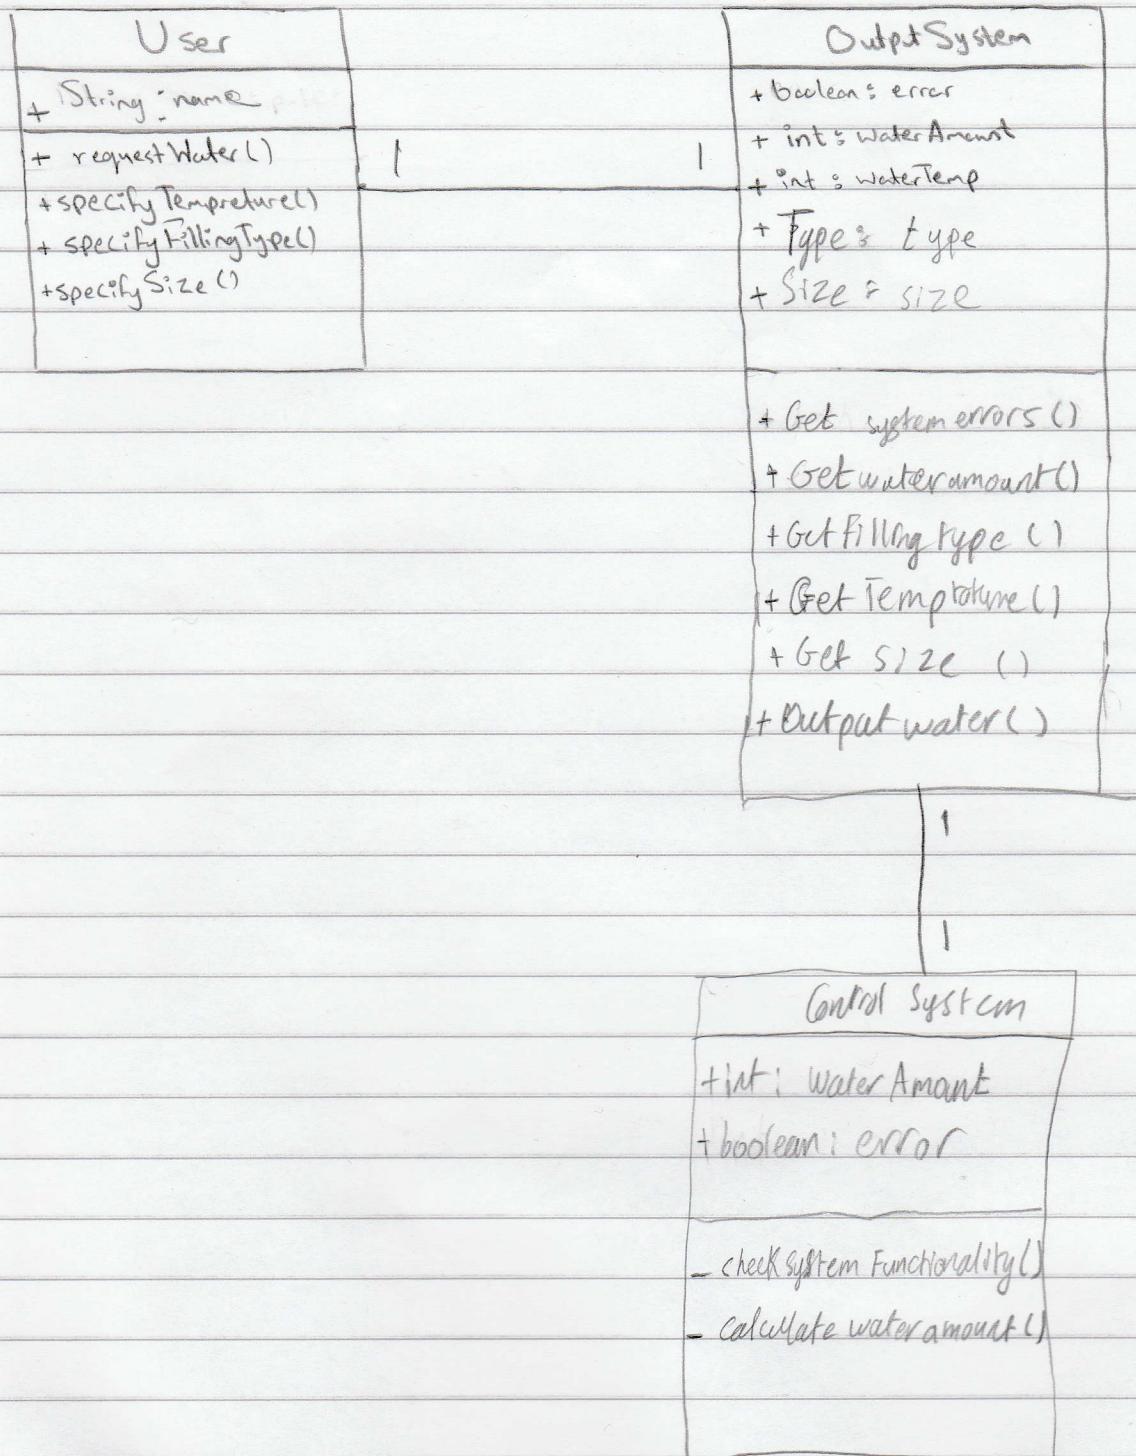 User
+ String : name
+ requestWater()
+specifyTempreture()
+ specifyFillingType()
+specifySize()
1 1
OutputSystem
+ boolean : error
+ int : waterAmount
+ int : waterTemp
+ Type : type
+ Size : size
+ Get systemerrors()
+ Getwateramount()
+Getfillingtype()
+ GetTemptature()
+ Get size ()
+Outputwater()
1
1
Control System
+int: WaterAmount
+boolean: error
- checksystemFunctionality()
- calculatewateramount()